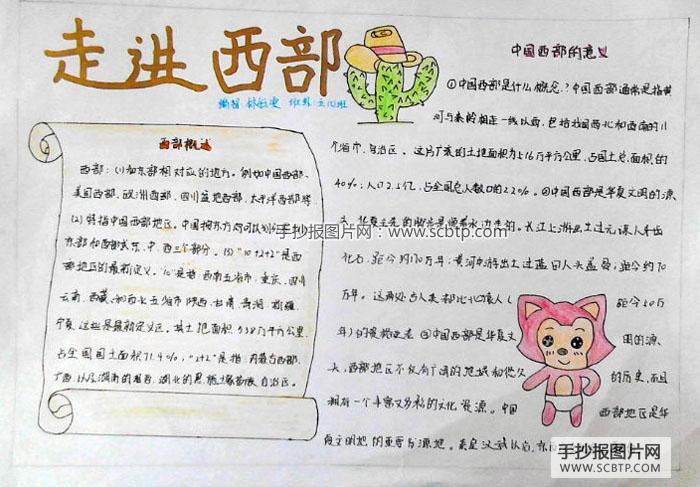 走进西部
编辑 林 班级 六 班
西部概述
西部：(1)和东部相对应的地方。例如中国西部、
美国西部、欧洲西部、四川盆地西部、太平洋西部等
(2)特指中国西部地区。中国按东方向可以划分为
东部和西部或东、中、西三个部分。(3)"10+2+2"是西
部地区的最新定义。"10"是指：西南五省市：重庆、四川
云南、西藏、和西北五省市陕西、甘肃、青海、新疆、
宁夏、这些是最新定义区。其土地面积538万平方公里，
占全国国土面积71.4%；"2+2"是指：内蒙古西部、
广西，以及湖南的湘西、湖北的恩施土家苗族自治区。
中国西部的意义
①中国西部是什么概念？中国西部通常是指黄
河与秦岭相连一线以西，包括我国西北和西南的11
个省市、自治区。这片广袤的土地面积为516万平方公里，占国土总面积的
40%；人口2.5亿，占全国总人数的22%。②中国西部是华夏文明的源
头，华夏文 的 是 着水 走的。长江上游出土过元谋人牙齿
化石，距今约170万年；黄河中游出土过蓝田人头盖骨，距今约70
万年。这两处古人类都比北京人（距今50万
年）的 更 ③中国西部是华夏文明的源
头，西部地区不仅有广阔的地域和悠久的历史，而且
拥有一个丰富又多彩的文化资源。中国西部地区是华
夏文明 的重要发源地。秦皇汉武以后，
手抄报图片网：www.scbtp.com
手抄报图片网
WWW.SCBTP.COM